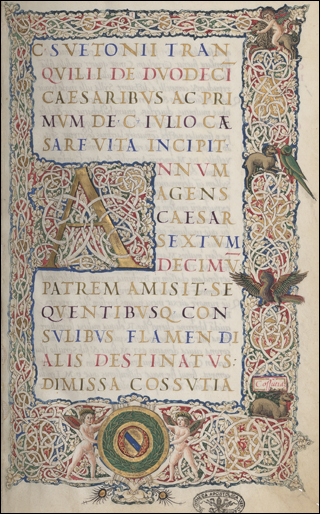 C·SVETONII TRAN
QVILII DE DVODECĪ
CAESARIBVS AC PRI
MVM DE·C·IVLIO CÆ
SARE VITA INCIPIT·
A NNVM
AGENS
CAESAR
SEXTVM
DECIMV̄
PATREM AMISIT·SE
QVENTIBVSQ CON
SVLIBVS FLAMEN DI
ALIS DESTINATVS:
DIMISSA COSSVTIA
Cossutia